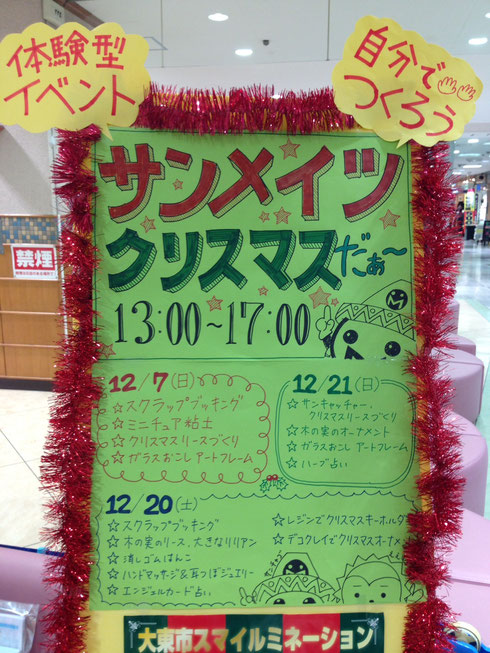 体験型
イベント
自分で
つくろう
サンメイツ
クリスマスだぁ〜
13:00~17:00
禁煙
12/7(日)
☆スクラップブッキング
☆ミニチュア粘土
☆クリスマスリースづくり
☆ガラスおこしアートフレーム
12/21(日)
☆サンキャッチャー・
クリスマスリースづくり
☆木の実のオーナメント
☆ガラスおこしアートフレーム
☆ハーブ占い
12/20(土)
☆スクラップブッキング
☆木の実のリース、大きなリリアン
☆消しゴムはんこ
☆ハンドマッサージ&耳つぼジュエリー
☆エンジェルカード占い
☆レジンでクリスマスキーホルダ
☆デコクレイでクリスマスオーナメ
サンチョゴ
大東市スマイルミネーション